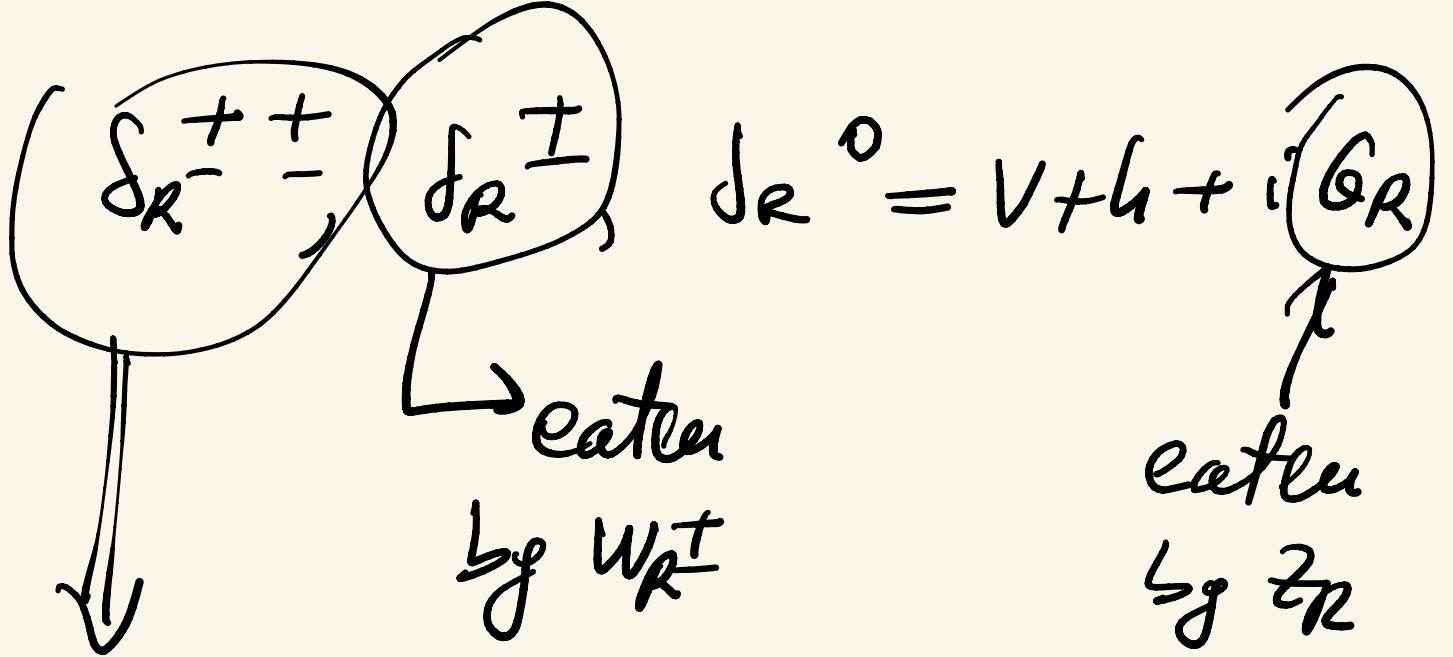 δ_R^{±±}, δ_R^±, δ_R^0 = v + h + i G_R
eaten
by W_R^±
eaten
by Z_R